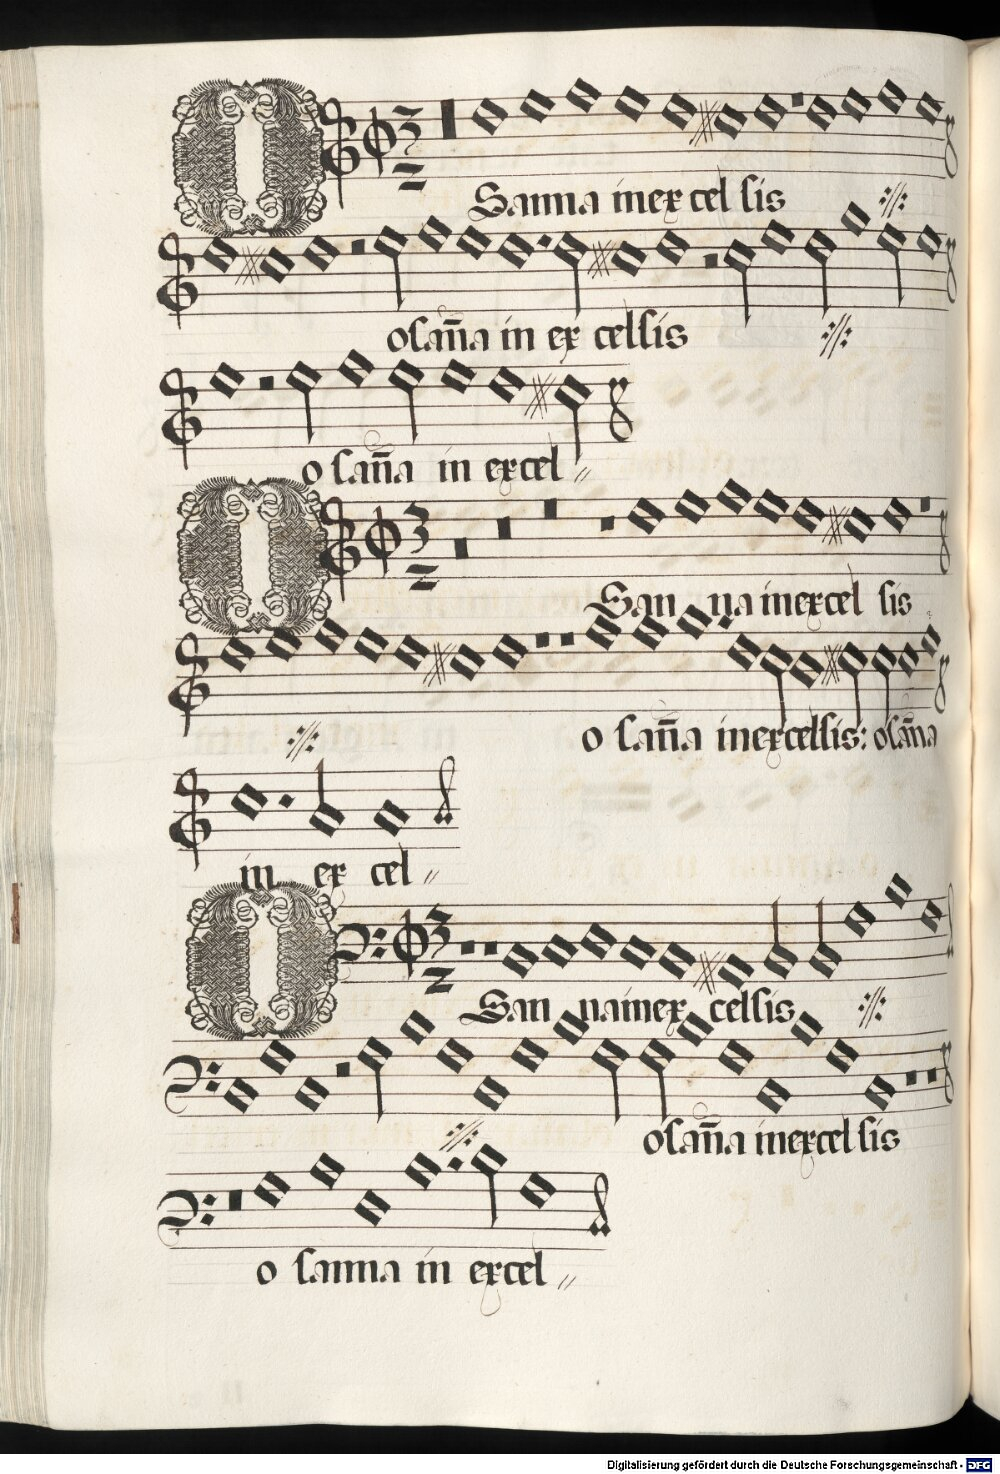 OSanna in excelsis
osan̄a in excelsis
o san̄a in excel
OSanna in excelsis
o san̄a in excelsis: osan̄a
in excel
OSanna in excelsis
osan̄a in excelsis
o sanna in excel
Digitalisierung gefördert durch die Deutsche Forschungsgemeinschaft - DFG